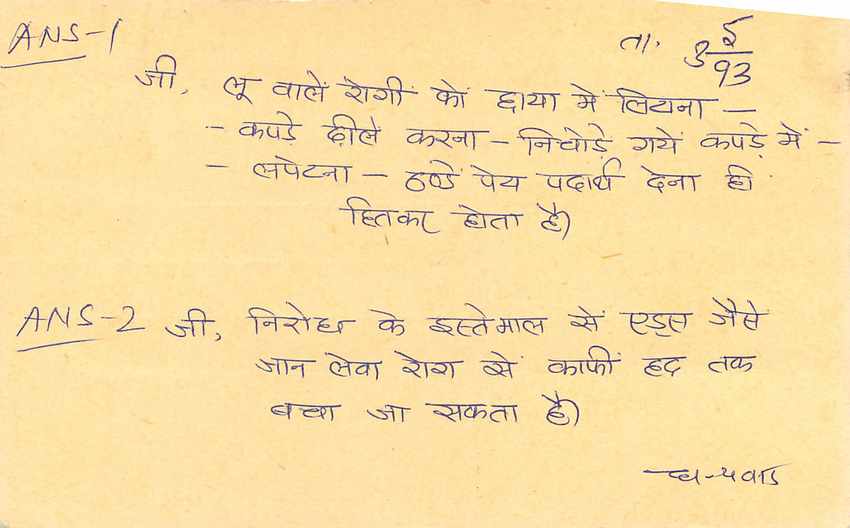 ANS-1
ता. 3ई/93
जी, लू वाले रोगी को छाया में लिटाना –
– कपडे ढीले करना – निचोड़े गयें कपड़े में –
– लपेटना – ठण्डे पेय पदार्थ देना ही
हितकर होता है)
ANS-2 जी, निरोध के इस्तेमाल से एड्स जैसे
जान लेवा रोग सें काफीं हद तक
बचा जा सकता है)
धन्यवाद